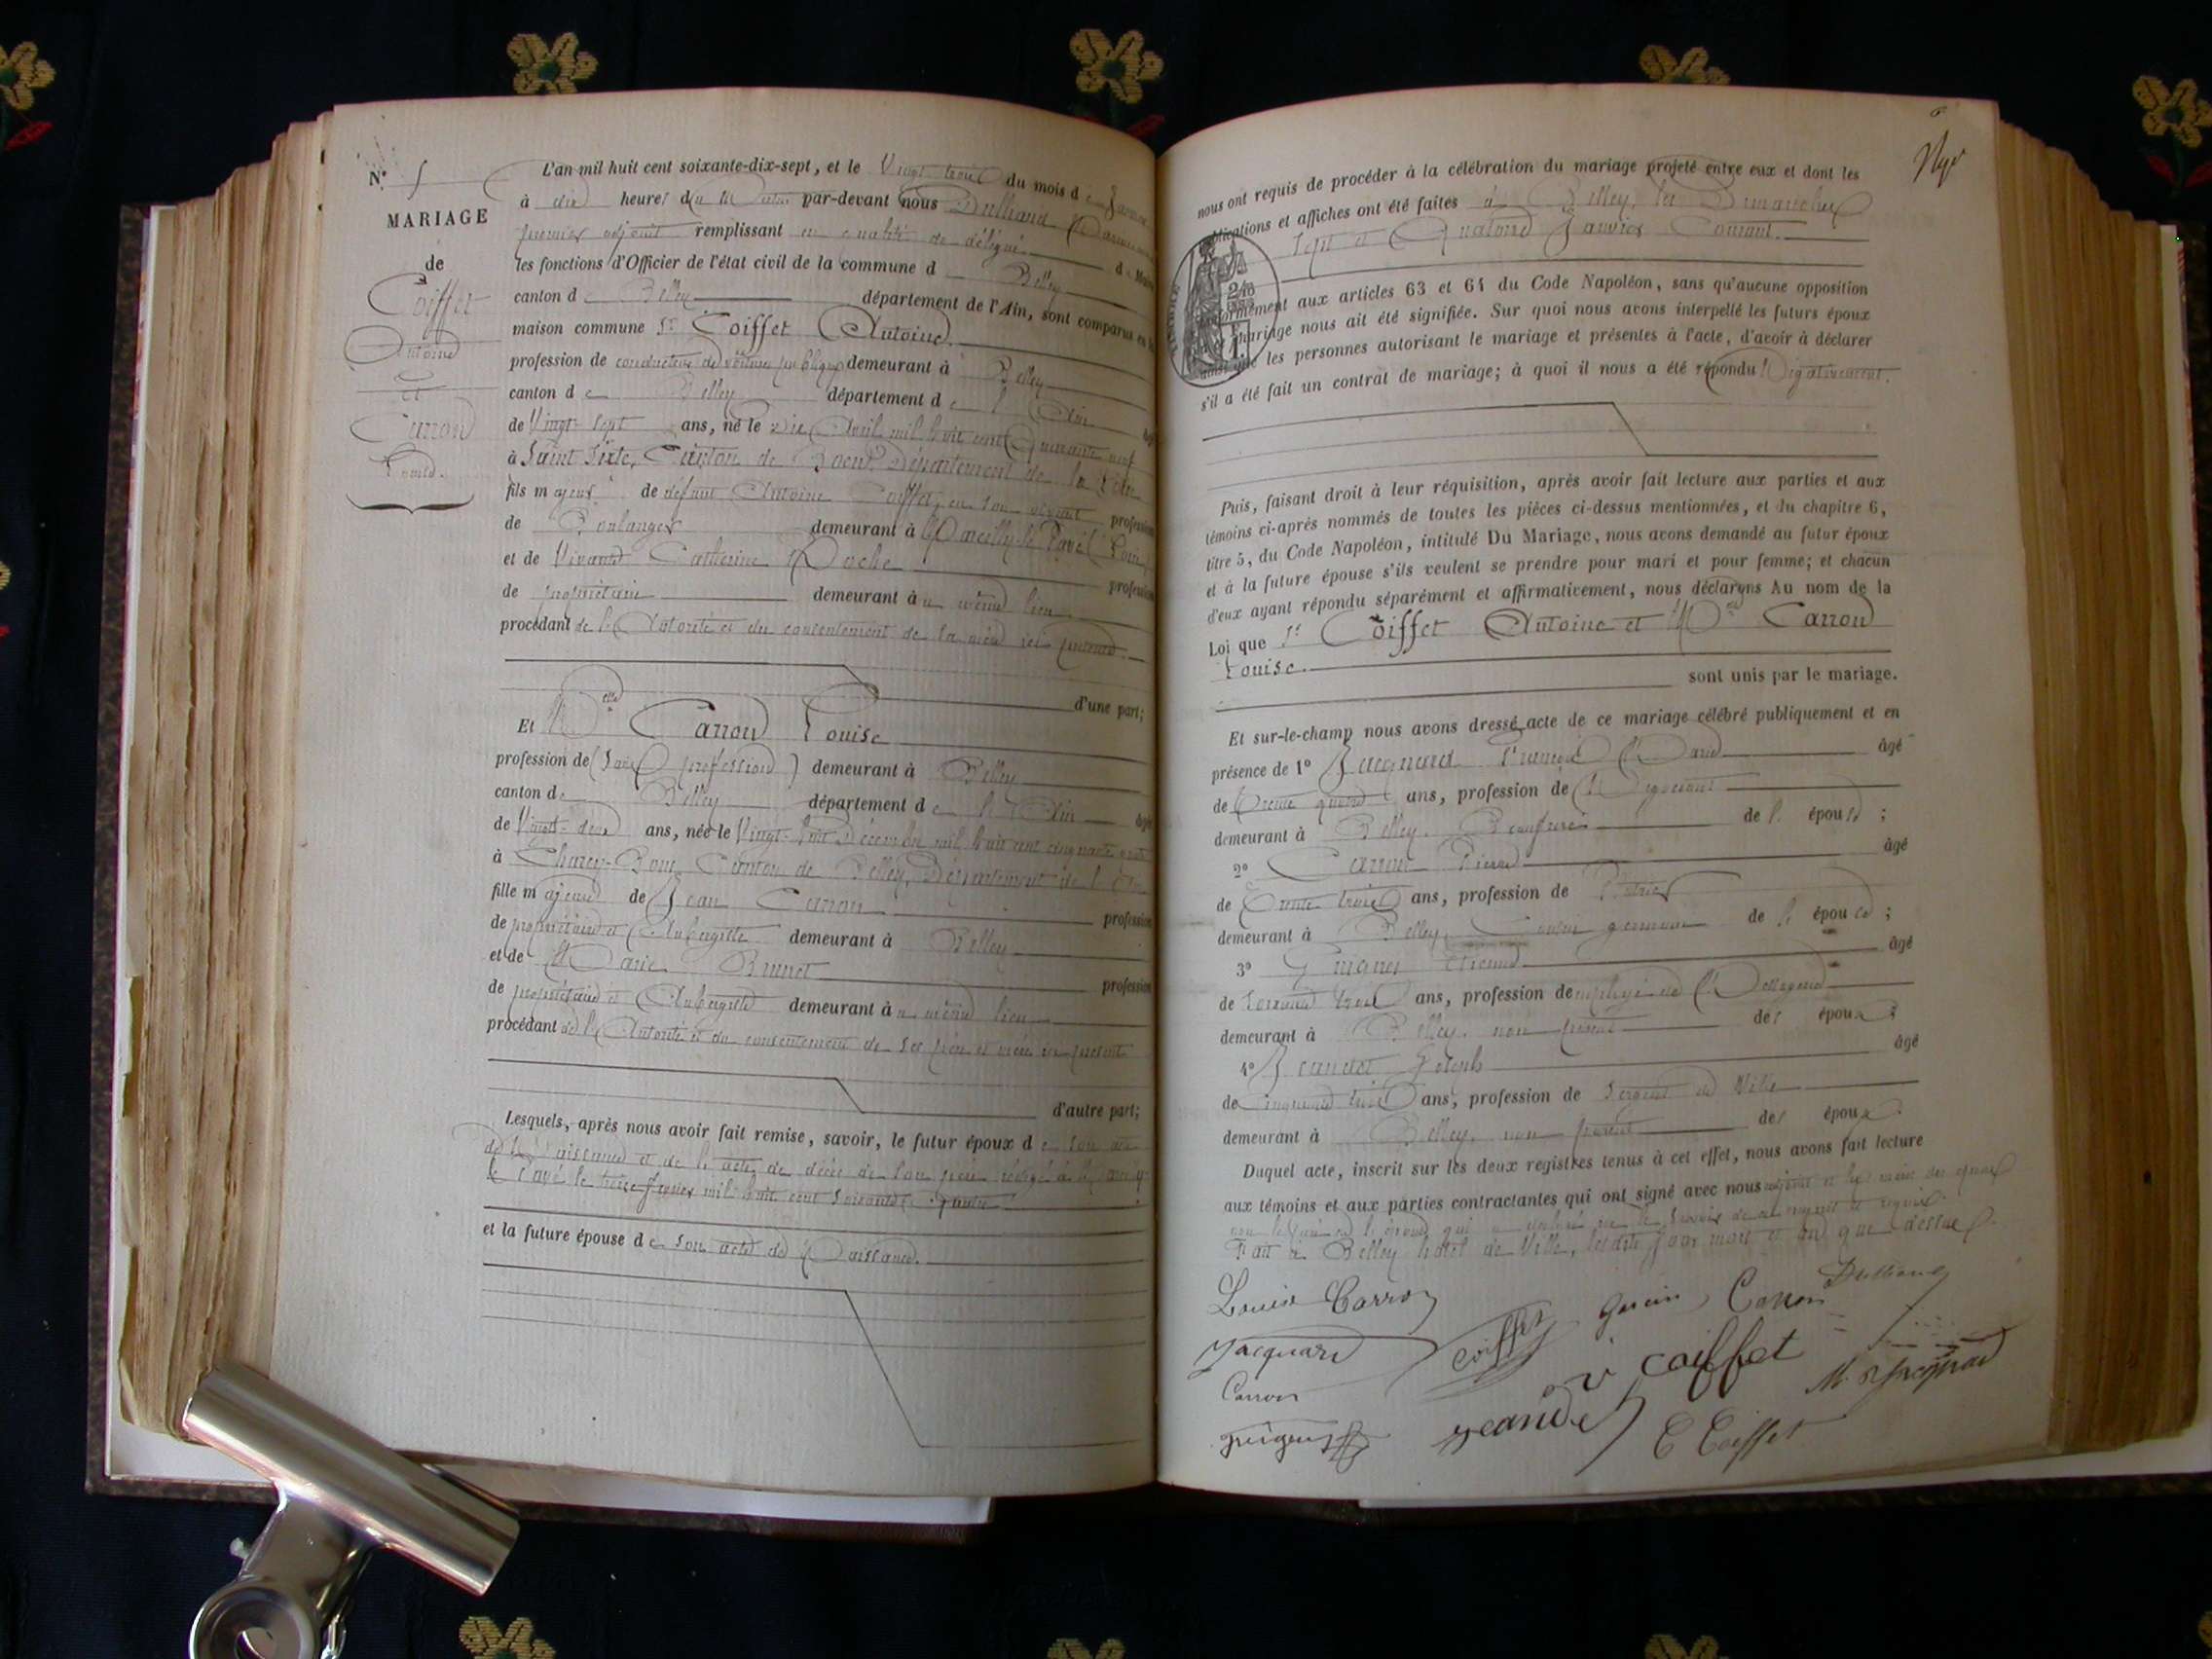 N° 5
MARIAGE
de
Coiffet
Antoine
et
Carron
Louise.
L'an mil huit cent soixante-dix-sept, et le Vingt trois du mois de Janvier
à dix heures du Matin par-devant nous Dulliand
premier adjoint remplissant en qualité de délégué
les fonctions d'Officier de l'état civil de la commune d Belley
canton de Belley département de l'Ain, sont comparus en la
maison commune Sr Coiffet Antoine.
profession de conducteur de voitures publiques demeurant à Belley
canton de Belley département de l'Ain
de Vingt-sept ans, né le dix Avril mil huit cent Quarante neuf
à Saint Sixte, Canton de Boën, Département de la Loire
fils majeur de défunt Antoine Coiffet, en son vivant profession
de Boulanger demeurant à Marcilly-le-Pavé (Loire)
et de Vivante Catherine profession
de propriétaire demeurant au même lieu
procédant de l'Autorité et du consentement de la mère ici présente.
d'une part;
Et Melle Carron Louise
profession de (sans profession) demeurant à Belley
canton de Belley département de l'Ain âgée
de Vingt-deux ans, née le Vingt-huit Décembre mil huit cent cinquante quatre
à Canton de Belley, Département de l'Ain
fille majeure de Jean Carron profession
de propriétaire et Aubergiste demeurant à Belley
et de Marie Brunet profession
de propriétaire et Aubergiste demeurant au même lieu
procédant de l'Autorité et du consentement de ses père et mère ici présents
d'autre part;
Lesquels, après nous avoir fait remise, savoir, le futur époux de son acte
de Naissance et de l'acte de décès de son père rédigé à Marcilly
le Pavé le treize mil huit cent soixante quatre
et la future épouse de son acte de Naissance.
nous ont requis de procéder à la célébration du mariage projeté entre eux et dont les
publications et affiches ont été faites à Belley, les Dimanches
Sept et Quatorze Janvier Courant.
conformément aux articles 63 et 64 du Code Napoléon, sans qu'aucune opposition
audit mariage nous ait été signifiée. Sur quoi nous avons interpellé les futurs époux
ainsi que les personnes autorisant le mariage et présentes à l'acte, d'avoir à déclarer
s'il a été fait un contrat de mariage; à quoi il nous a été répondu Négativement.
Puis, faisant droit à leur réquisition, après avoir fait lecture aux parties et aux
témoins ci-après nommés de toutes les pièces ci-dessus mentionnées, et du chapitre 6,
titre 5, du Code Napoléon, intitulé Du Mariage, nous avons demandé au futur époux
et à la future épouse s'ils veulent se prendre pour mari et pour femme; et chacun
d'eux ayant répondu séparément et affirmativement, nous déclarons Au nom de la
Loi que Sr Coiffet Antoine et Melle Carron
Louise.
sont unis par le mariage.
Et sur-le-champ nous avons dressé acte de ce mariage célébré publiquement et en
présence de 1° Jacquard François Marie âgé
de trente quatre ans, profession de Négociant
demeurant à Belley. Beaufrère de l'épouse;
2° Carron Pierre âgé
de trente trois ans, profession de
demeurant à Belley, Cousin germain de l'épouse;
3° Etienne âgé
de soixante trois ans, profession de employé de
demeurant à Belley. non parent des époux;
4° Jeandet Joseph âgé
de Cinquante trois ans, profession de Sergent de Ville
demeurant à Belley, non parent des époux.
Duquel acte, inscrit sur les deux registres tenus à cet effet, nous avons fait lecture
aux témoins et aux parties contractantes qui ont signé avec nous
Fait à Belley hôtel de Ville, les dits jour mois et an que dessus.
Louise Carron
Jacquard
Coiffet
Carron
Dulliand
Carron
Coiffet
M. Jacquard
Jeandet
C Coiffet